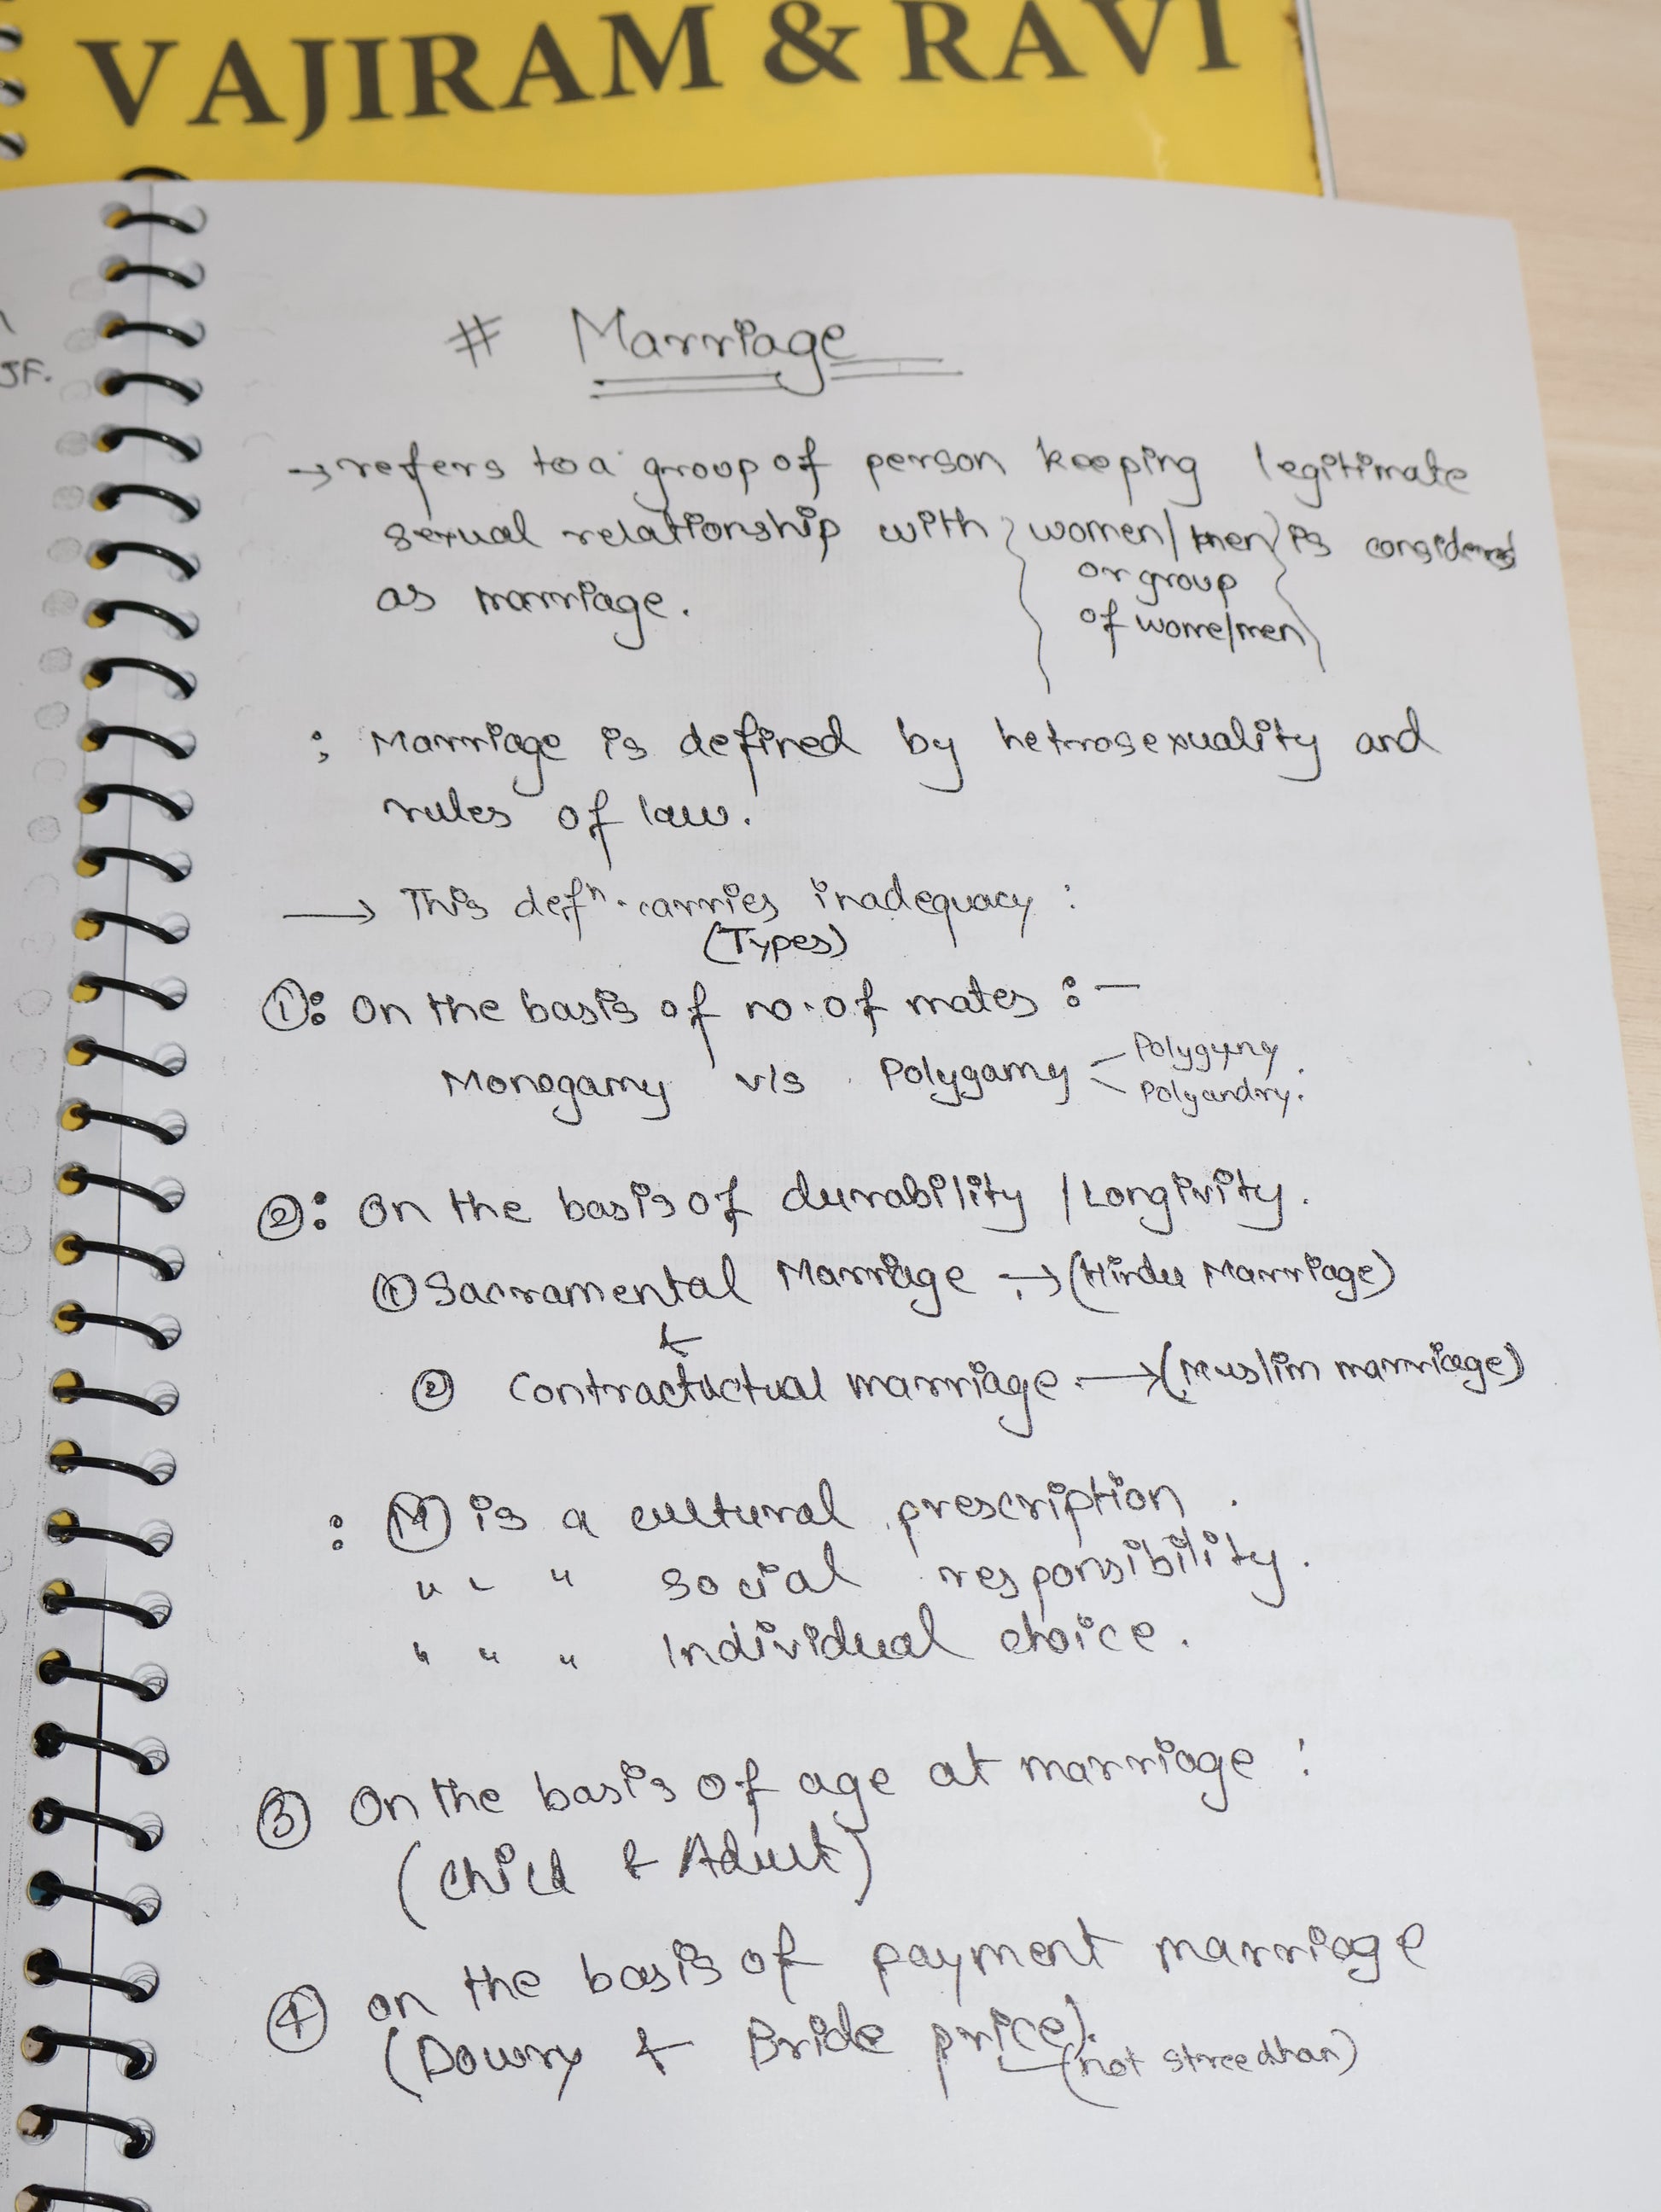 VAJIRAM & RAVI
JF.
# Marriage
→ refers to a group of person keeping legitimate
sexual relationship with { women/men } is considered
or group
of wome/men
as marriage.
: Marriage is defined by hetrosexuality and
rules of law.
→ This defn. carries inadequacy :
(Types)
①: On the basis of no. of mates :-
Monogamy v/s Polygamy < Polygyny
Polyandry.
②: On the basis of durability / Longivity.
① Sacramental Marriage → (Hindu Marriage)
&
② Contractuctual marriage. → (Muslim marriage)
: Ⓜ is a cultural prescription.
" " " Social responsibility.
" " " Individual choice.
③ On the basis of age at marriage :
(Child & Adult)
④ on the basis of payment marriage
(Dowry & Bride price).
(not streedhan)